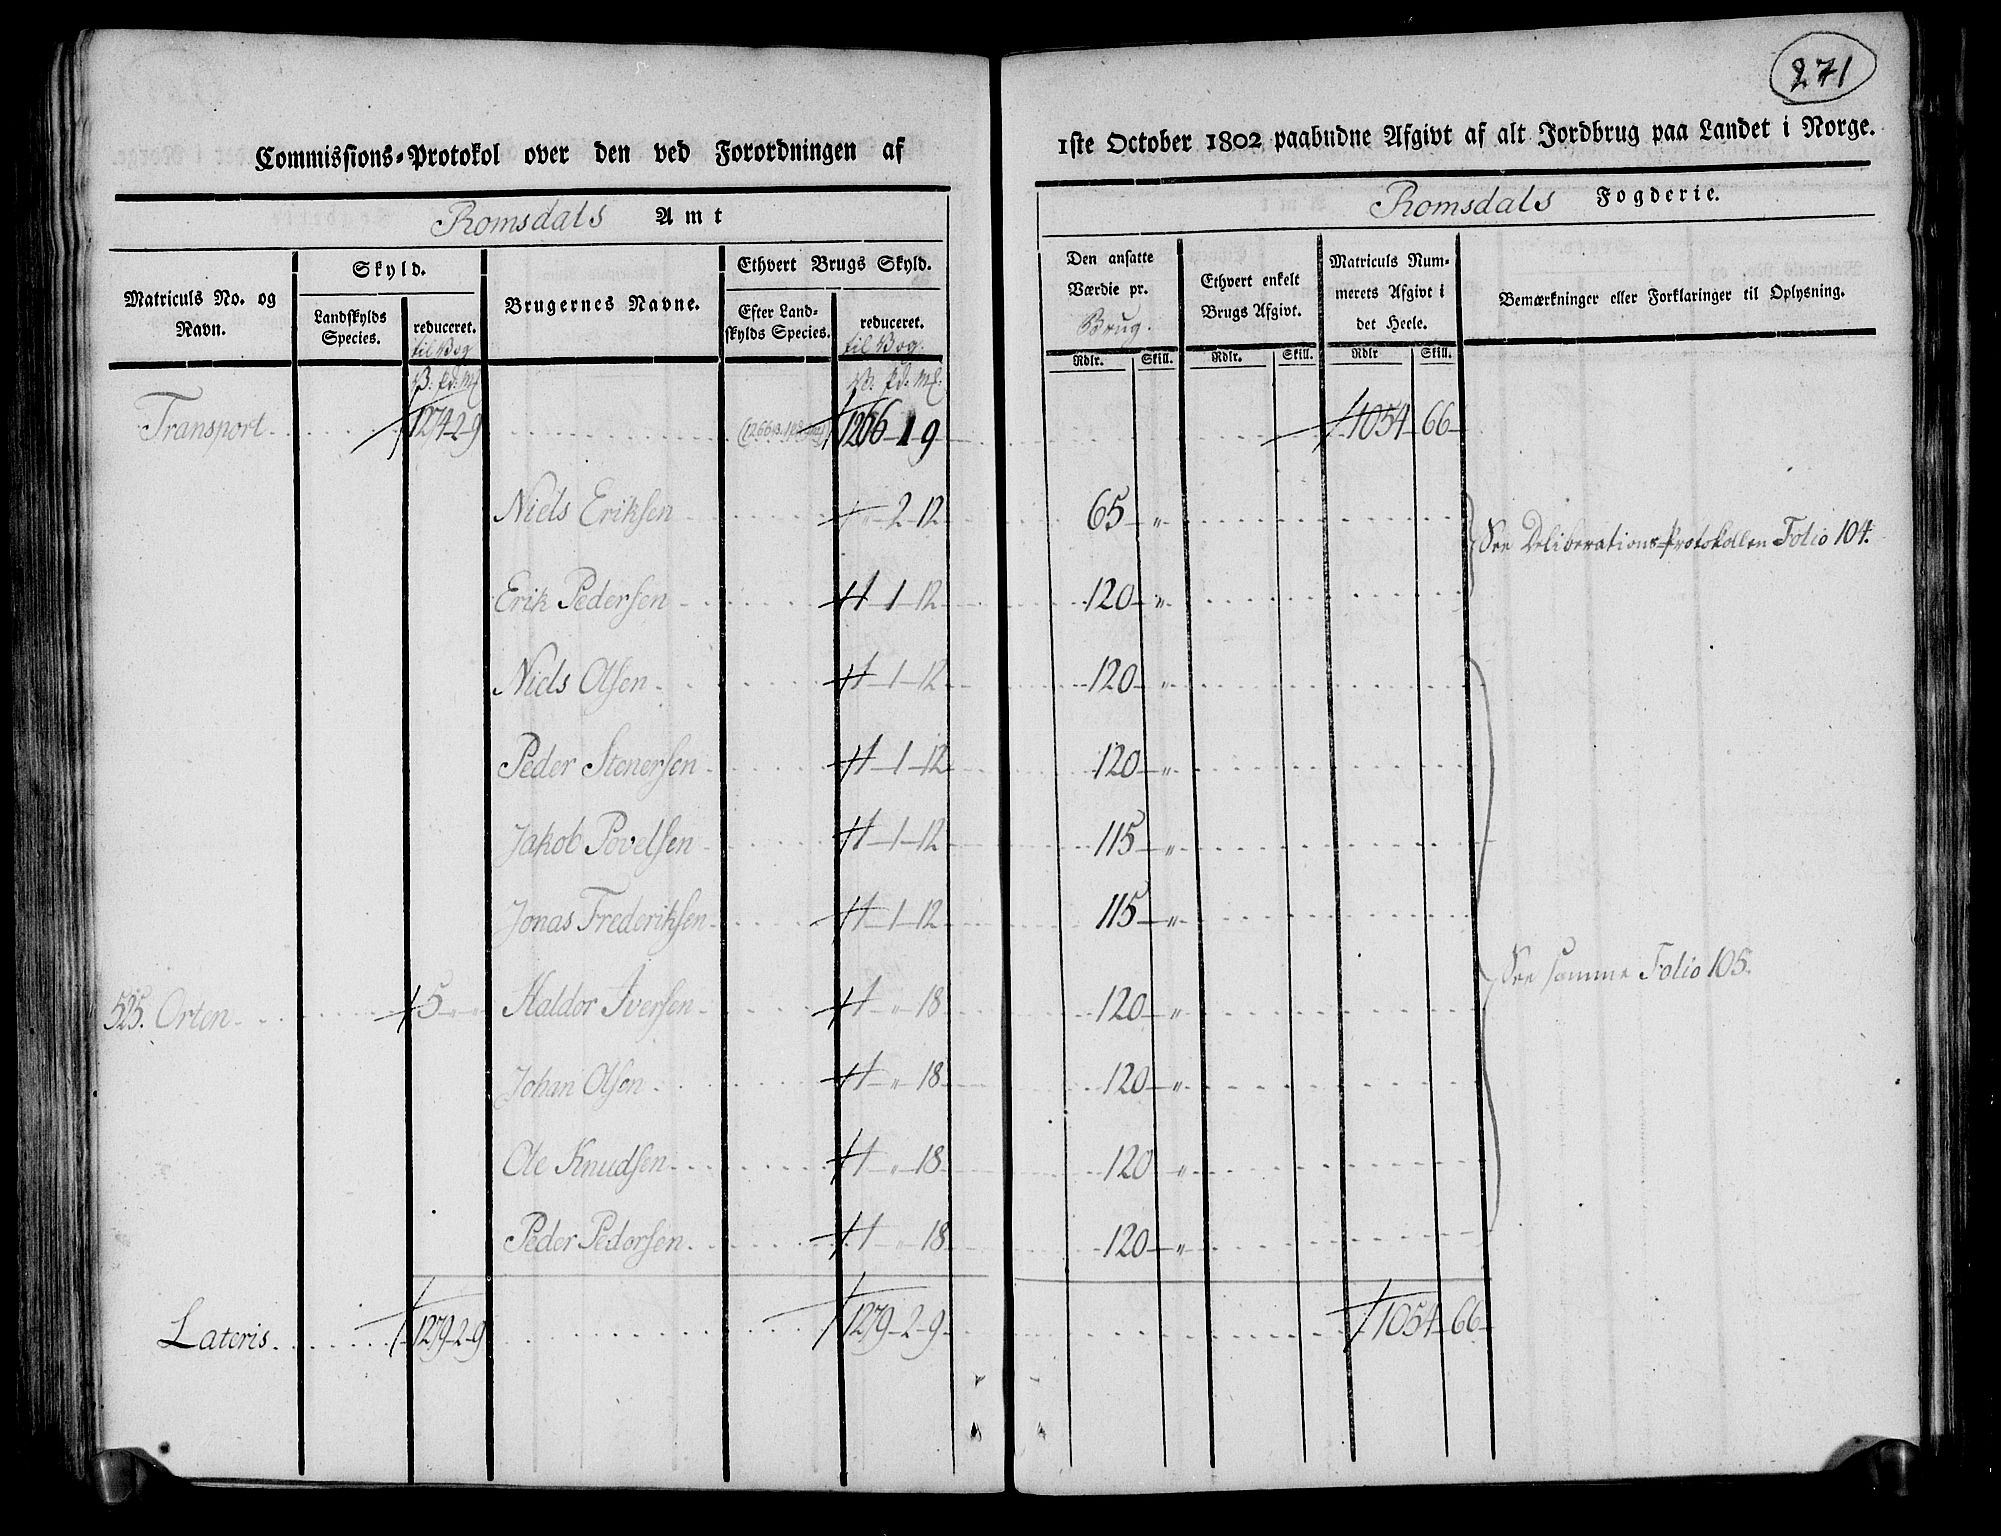 271
Commissions-Protokol over den ved Forordningen af 1ste October 1802 paabudne Afgivt af alt Jordbrug paa Landet i Norge.
Romsdals Amt
Romsdals Fogderie.
Matriculs No. og Navn.
Skyld.
Landskylds Species.
reduceret. til Vog
Brugernes Navne.
Ethvert Brugs Skyld.
Efter Landskylds Species.
reduceret. til Vog.
Den ansatte Værdie pr. Brug.
Ethvert enkelt Brugs Afgivt.
Matriculs Nummerets Afgivt i det Heele.
Bemærkninger eller Forklaringer til Oplysning.
Rdlr. Skill. Rdlr. Skill. Rdlr Skill.
V. pd. Mk V. pd. Mk.
Transport 1274-2-9 1266-1 9 1054 66
Niels Eriksen " 2-12 65 "
See Deliberations-Protokollen Folio 104.
Erik Pedersen 1-1-12 120 "
Niels Olsen 1-1-12 120 "
Peder Stenersen 1-1-12 120 "
Jakob Povelsen 1-1-12 115 "
Jonas Frederiksen 1-1-12 115 "
See samme Folio 105.
525. Orten 5 " " Haldor Iversen 1 " 18 120 "
Johan Olsen 1 " 18 120 "
Ole Knudsen 1 " 18 120 "
Peder Pedersen 1 " 18 120 "
Lateris 1279-2-9 1279-2-9 1054 66